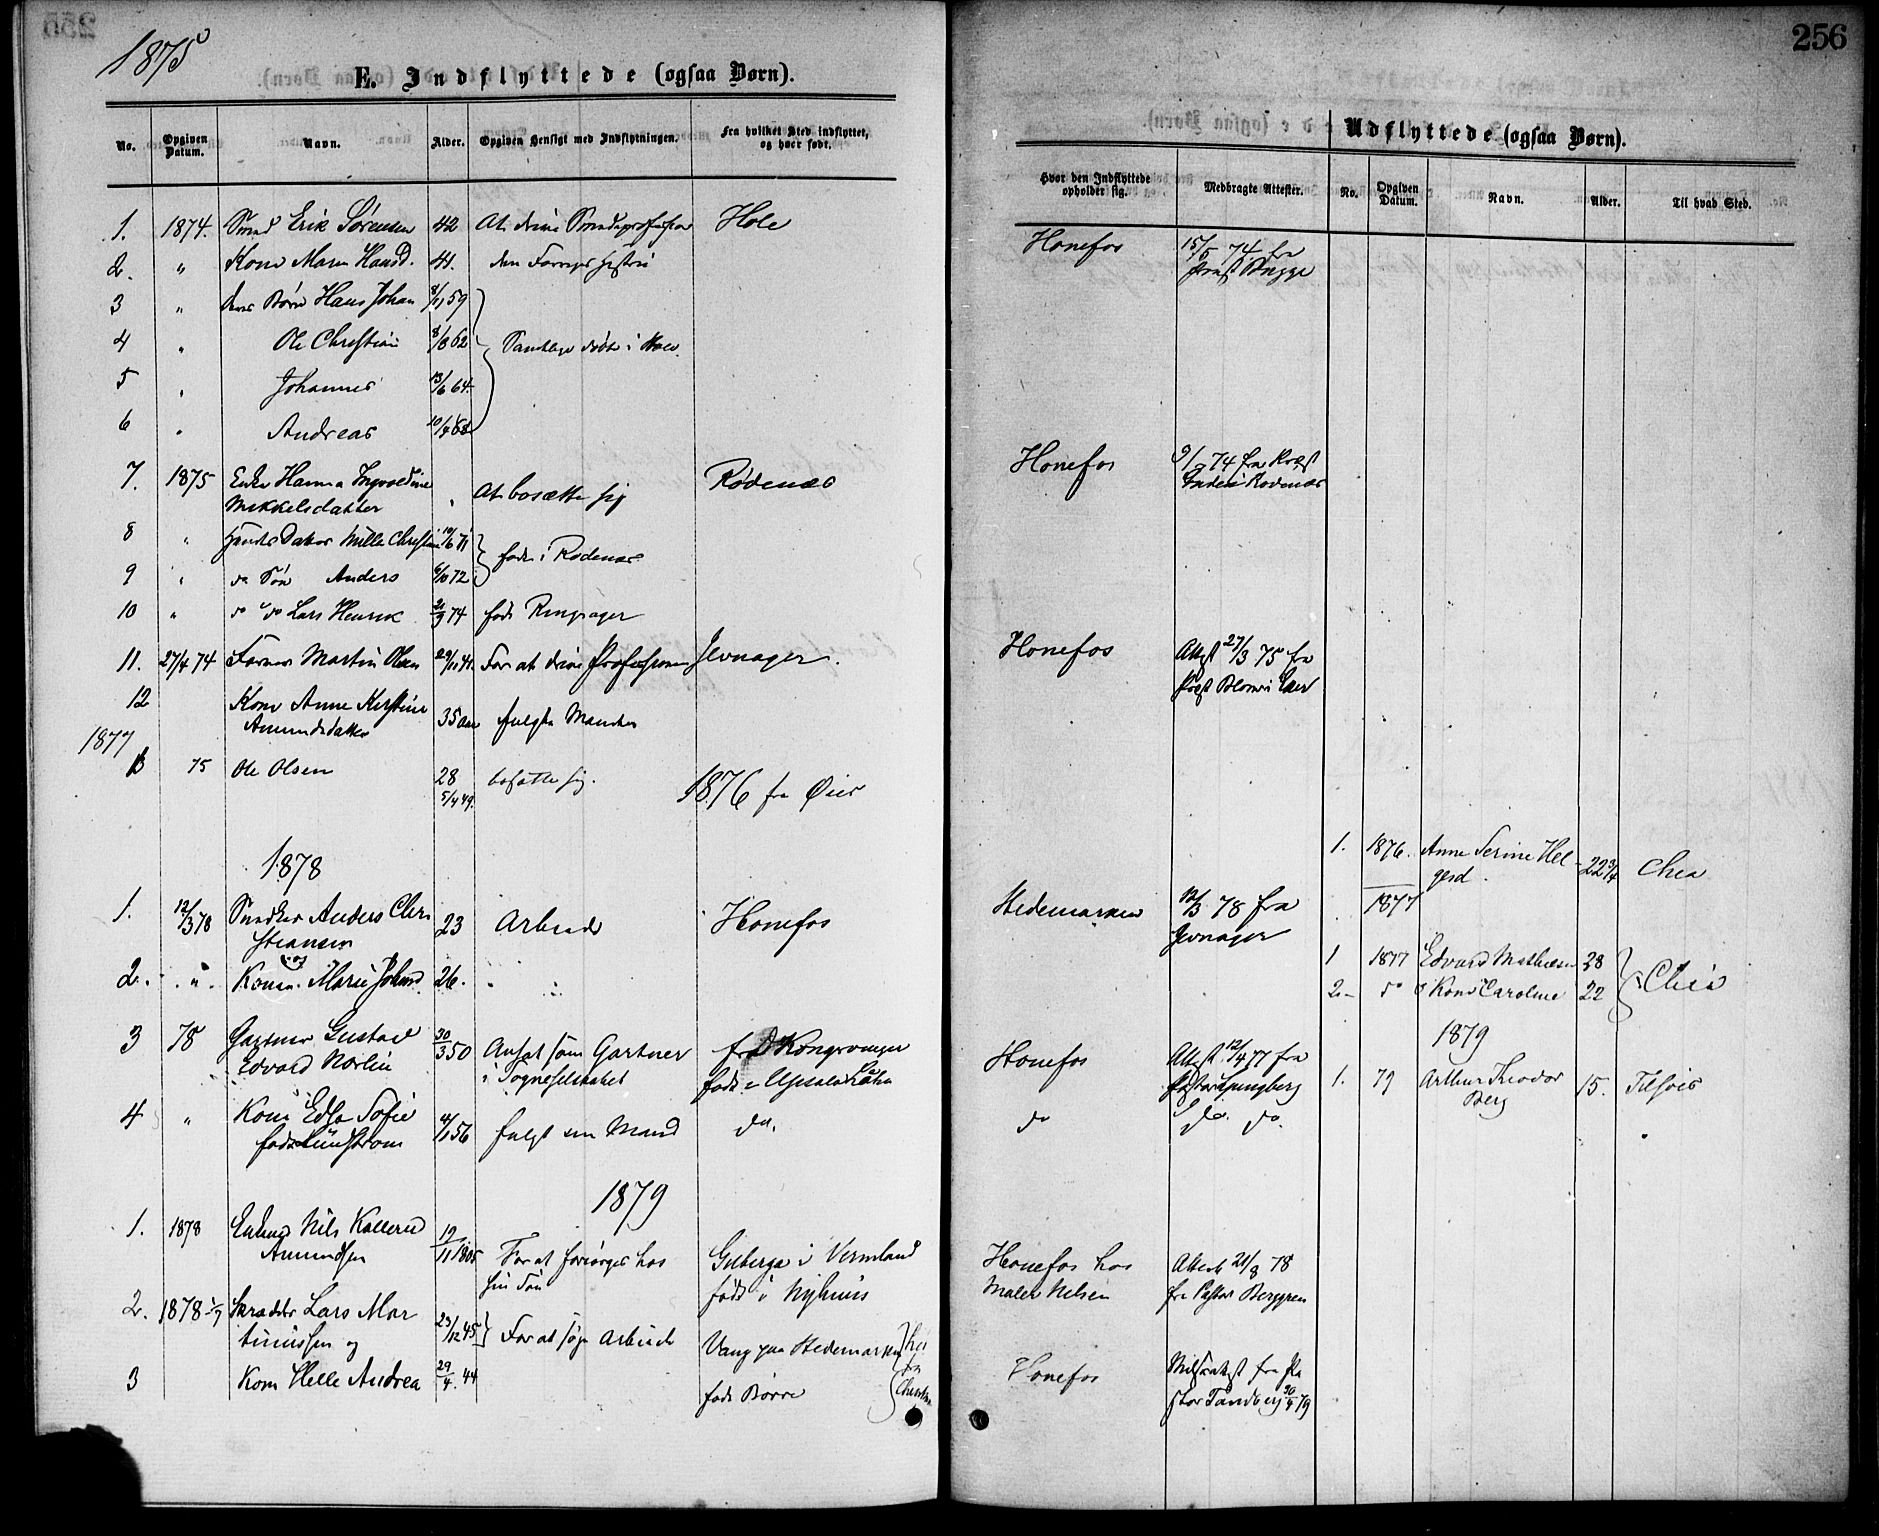 1875
E. Indflyttede (ogsaa Børn).
No. Opgiven Datum. Navn. Alder. Opgiven Hensigt med Indflytningen. Fra hvilket Sted indflyttet, og hvor født.
1. 1874. Smed Erik Sørensen 42 At drive Smedeprofession Hole
2. " Kone Maren Hansd. 41.
3 " deres Børn Hans Johan 8/11 59
4 " Ole Christian 8/8 62 Samtlige født i Hole.
5 " Johannes 13/6 64.
6 " Andreas 10/4 68
7. 1875 Enke Hanna Ingvoldine
Mikkelsdatter " At bosætte sig Rødenæs
8 " Hendes Datter Mille Christine 10/6 71
født i Rødenæs
9 " do Søn Anders 6/10 72
10 " do do Lars Henrik 21/9 74 født Ringsager
11. 27/4 74 Farver Martin Olsen 29/11 41. For at drive Professionen Jevnager.
12 Kone Anne Kirstine
Amundsdatter 35 Aar fulgte Manden
1877
13 75 Ole Olsen 28 bosætte sig. 1876 fra Øier
5/4 49.
1878
1. 12/3 78 Snedker Anders Chri
stiansen 23 Arbeide Hønefos
og
2. " Konen Marie Johansd 26. " "
3 78 Gartner Gustav
Edvard Norlin 30/3 50 Ansat som Gartner
i Sogneselskabet fra Kongsvinger
født i Upsala Lähn
4 " Kone Edla Sofie
født Lundstrøm 4/11 56 fulgt sin Mand do.
1879
1. 1878 Enkem Nils
Amundsen 19/11 1805 For at forsørges hos
sin Søn Gilberga i Vermland
født i
2. 1878 Skrædder Lars Mar
tinussen og 23/12 45 For at søge Arbeide Vang paa Hedemarken
3 Kone Helle Andrea 29/4. 44 født Børre
256
Udflyttede (ogsaa Børn).
Hvor den Indflyttede opholder sig. Medbragte Attester. No. Opgiven Datum. Navn. Alder. Til hvad Sted.
Hønefos 15/5 74 fra
Præst Bugge
Hønefos 9/ 74 fra Præst
i Rødenæs
Hønefos Attest 27/3 75 fra
Præst Blom i Eker
1. 1876. Anne Serine Hel
gesd. 22 3/4 Chra
1877
Hedemarken 12/3 78 fra
Jevnager
1 1877 Edvard Mathiesen 28
2. do Kone Caroline 22 Chria
1879
Hønefos Attest 12/4 77 fra
Pastor Ljungberg
1. 79 Arthur Theodor
Berg 15. Tilsvis
do do. do.
Hønefos hos
Maler Nilsen Attest 21/8 78
fra Pastor Berggren
Hønefos fra Pa
stor Tandberg 30/4 79